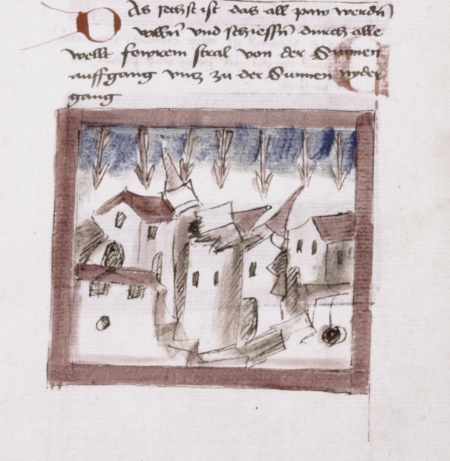 DAs sechst ist das all paw werdn̄
valln̄ vnd schiessn̄ durch alle
wellt fewrein stral von der Sunnen
auffgang vntz zu der Sunnen nyder
gang